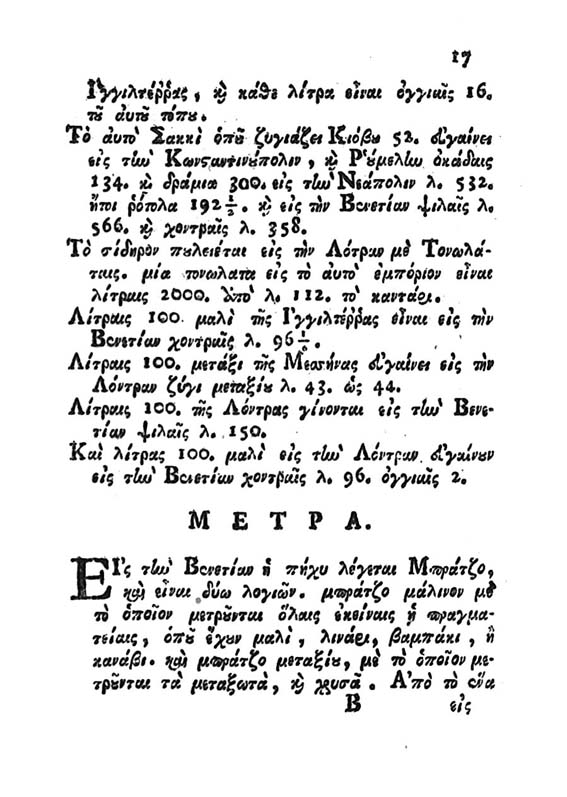 17
Ιγγιλτέῤῥας, ϗ κάθε λίτρα εἶναι ὀγγιαῖς 16.
τȣ̃ αὐτȣ̃ τόπȣ.
Τὸ αὐτὸ Σακκὶ ὁπȣ̃ ζυγιάζει Κιόβȣ 52. ἐυγαίνει
εἰς τὴν Κωνϛαντινούπολιν, ϗ Ρȣ́μελην ὀκάδαις
134. ϗ δράμια 300. εἰς τὴν Νεάπολιν λ. 532.
ἤτοι ῥότολα 192 1/2. ϗ εἰς τὴν Βενετίαν ψιλαῖς λ.
566. ϗ χοντραῖς λ. 358.
Τὸ σίδηρον πȣλειέται εἰς τὴν Λότραν μὲ Τονωλά-
ταις. μία τονωλάτα εἰς τὸ αὐτὸ ἐμπόριον εἶναι
λίτραις 2000. ἀπὸ λ. 112. τὸ καντάρι.
Λίτραις 100. μαλὶ τῆς Ιγγιλτέῤῥας εἶναι εἰς τὴν
Βενετίαν χοντραῖς λ. 96 1/6.
Λίτραις 100. μετάξι τῆς Μεσήνας ἐυγαίνει εἰς τὴν
Λόντραν ζύγι μεταξίȣ λ. 43. ὡς 44.
Λίτραις 100. τῆς Λόντρας γίνονται εἰς τὴν Βενε-
τίαν ψιλαῖς λ. 150.
Καὶ λίτρας 100. μαλὶ εἰς τὴν Λόντραν ἐυγαίνȣν
εἰς τὴν Βενετίαν χοντραῖς λ. 96. ὀγγιαῖς 2.
ΜΕΤΡΑ.
ΕΙ'ς τὴν Βενετίαν ἡ πήχυ λέγεται Μπράτζο,
καὶ εἶναι δύω λογιῶν. μπράτζο μάλινον μὲ
τὸ ὁποῖον μετρȣ̃νται ὅλαις ἐκείναις ἡ πραγμα-
τείαις, ὁπȣ̃ ἔχȣν μαλὶ, λινάρι, βαμπάκι, ἢ
κανάβι. καὶ μπράτζο μεταξίȣ, μὲ τὸ ὁποῖον με-
τρȣ̃νται τὰ μεταξωτὰ, ϗ χρυσᾶ. Α'πὸ τὸ ἕνα
Β εἰς